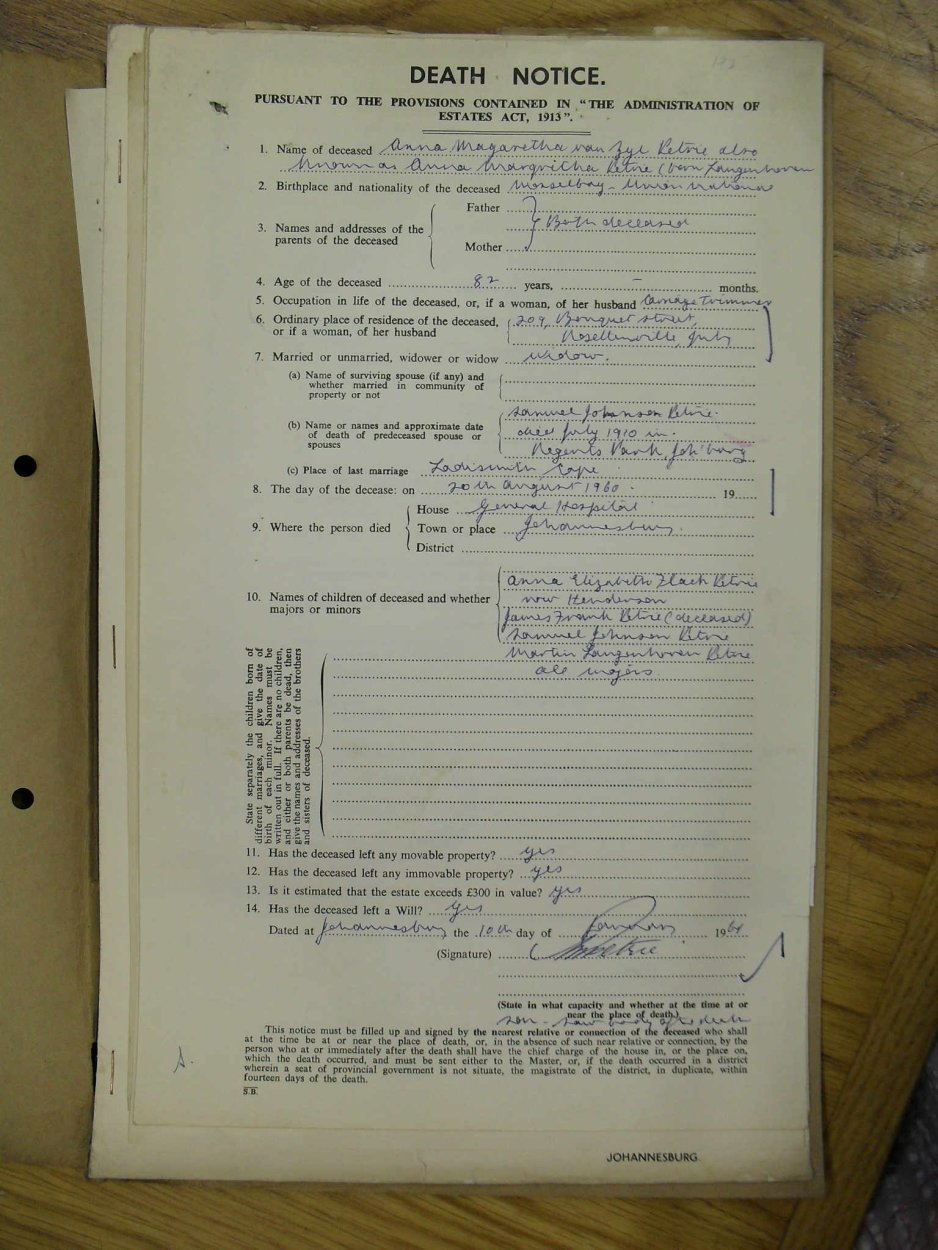 DEATH NOTICE.
PURSUANT TO THE PROVISIONS CONTAINED IN "THE ADMINISTRATION OF
ESTATES ACT, 1913".
1. Name of deceased Anna Magaretha van Zyl Retrie also
known as Anna Margritha Retrie (born Langenhoven
2. Birthplace and nationality of the deceased Mosselbay - Union National
3. Names and addresses of the parents of the deceased
Father
Both deceased
Mother
4. Age of the deceased 82 years, - months.
5. Occupation in life of the deceased, or, if a woman, of her husband Carriage Trimmer
6. Ordinary place of residence of the deceased, 209, Bouquet street,
or if a woman, of her husband Rosettenville, Jhb
7. Married or unmarried, widower or widow widow.
(a) Name of surviving spouse (if any) and
whether married in community of
property or not
(b) Name or names and approximate date
of death of predeceased spouse or
spouses
Samuel Johnson Retrie.
died July 1910 in
Regents Park, Joh'burg
(c) Place of last marriage Ladismith Cape
8. The day of the decease: on 20th August 1960. 19
9. Where the person died
House General Hospital
Town or place Johannesburg.
District
10. Names of children of deceased and whether
majors or minors
Anna Elizabeth Zlach Retrie
now Henderson
James Frank Retrie (deceased)
Samuel Johnson Retrie
Martin Langenhoven Retrie
all majors
State separately the children born of
different marriages, and give the date of
birth of each minor. Names must be
written out in full. If there are no children,
and either or both parents be dead, then
give the names and addresses of the brothers
and sisters of deceased.
11. Has the deceased left any movable property? yes
12. Has the deceased left any immovable property? yes
13. Is it estimated that the estate exceeds £300 in value? yes
14. Has the deceased left a Will? yes
Dated at Johannesburg the 10th day of January 1961
(Signature)
(State in what capacity and whether at the time at or
near the place of death).
son - saw body after death
This notice must be filled up and signed by the nearest relative or connection of the deceased who shall
at the time be at or near the place of death, or, in the absence of such near relative or connection, by the
person who at or immediately after the death shall have the chief charge of the house in, or the place on,
which the death occurred, and must be sent either to the Master, or, if the death occurred in a district
wherein a seat of provincial government is not situate, the magistrate of the district, in duplicate, within
fourteen days of the death.
S.B.
JOHANNESBURG